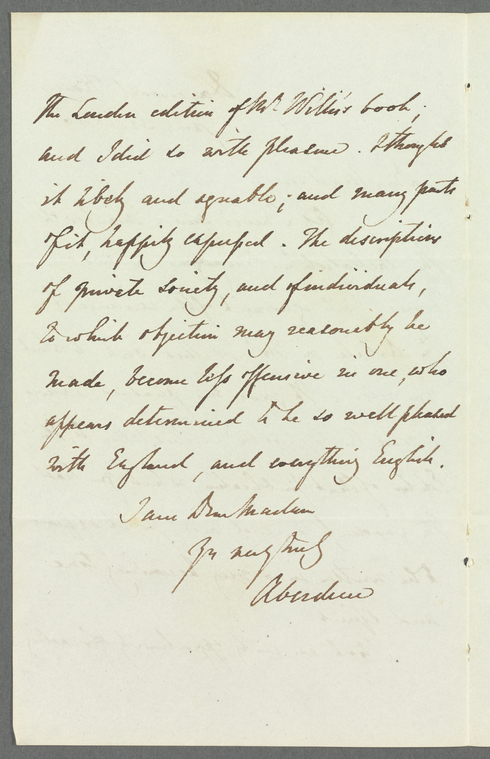 The London edition of Mr. Willis's book;
and I did so with pleasure. I thought
it lively and agreable; and many parts
of it, happily expressed. The descriptions
of private Society, and of individuals,
to which objection may reasonably be
made, become less offensive in one, who
appears determined to be so well pleased
with England, and everything English.
I am Dear Madam
Yr very truly
Aberdeen